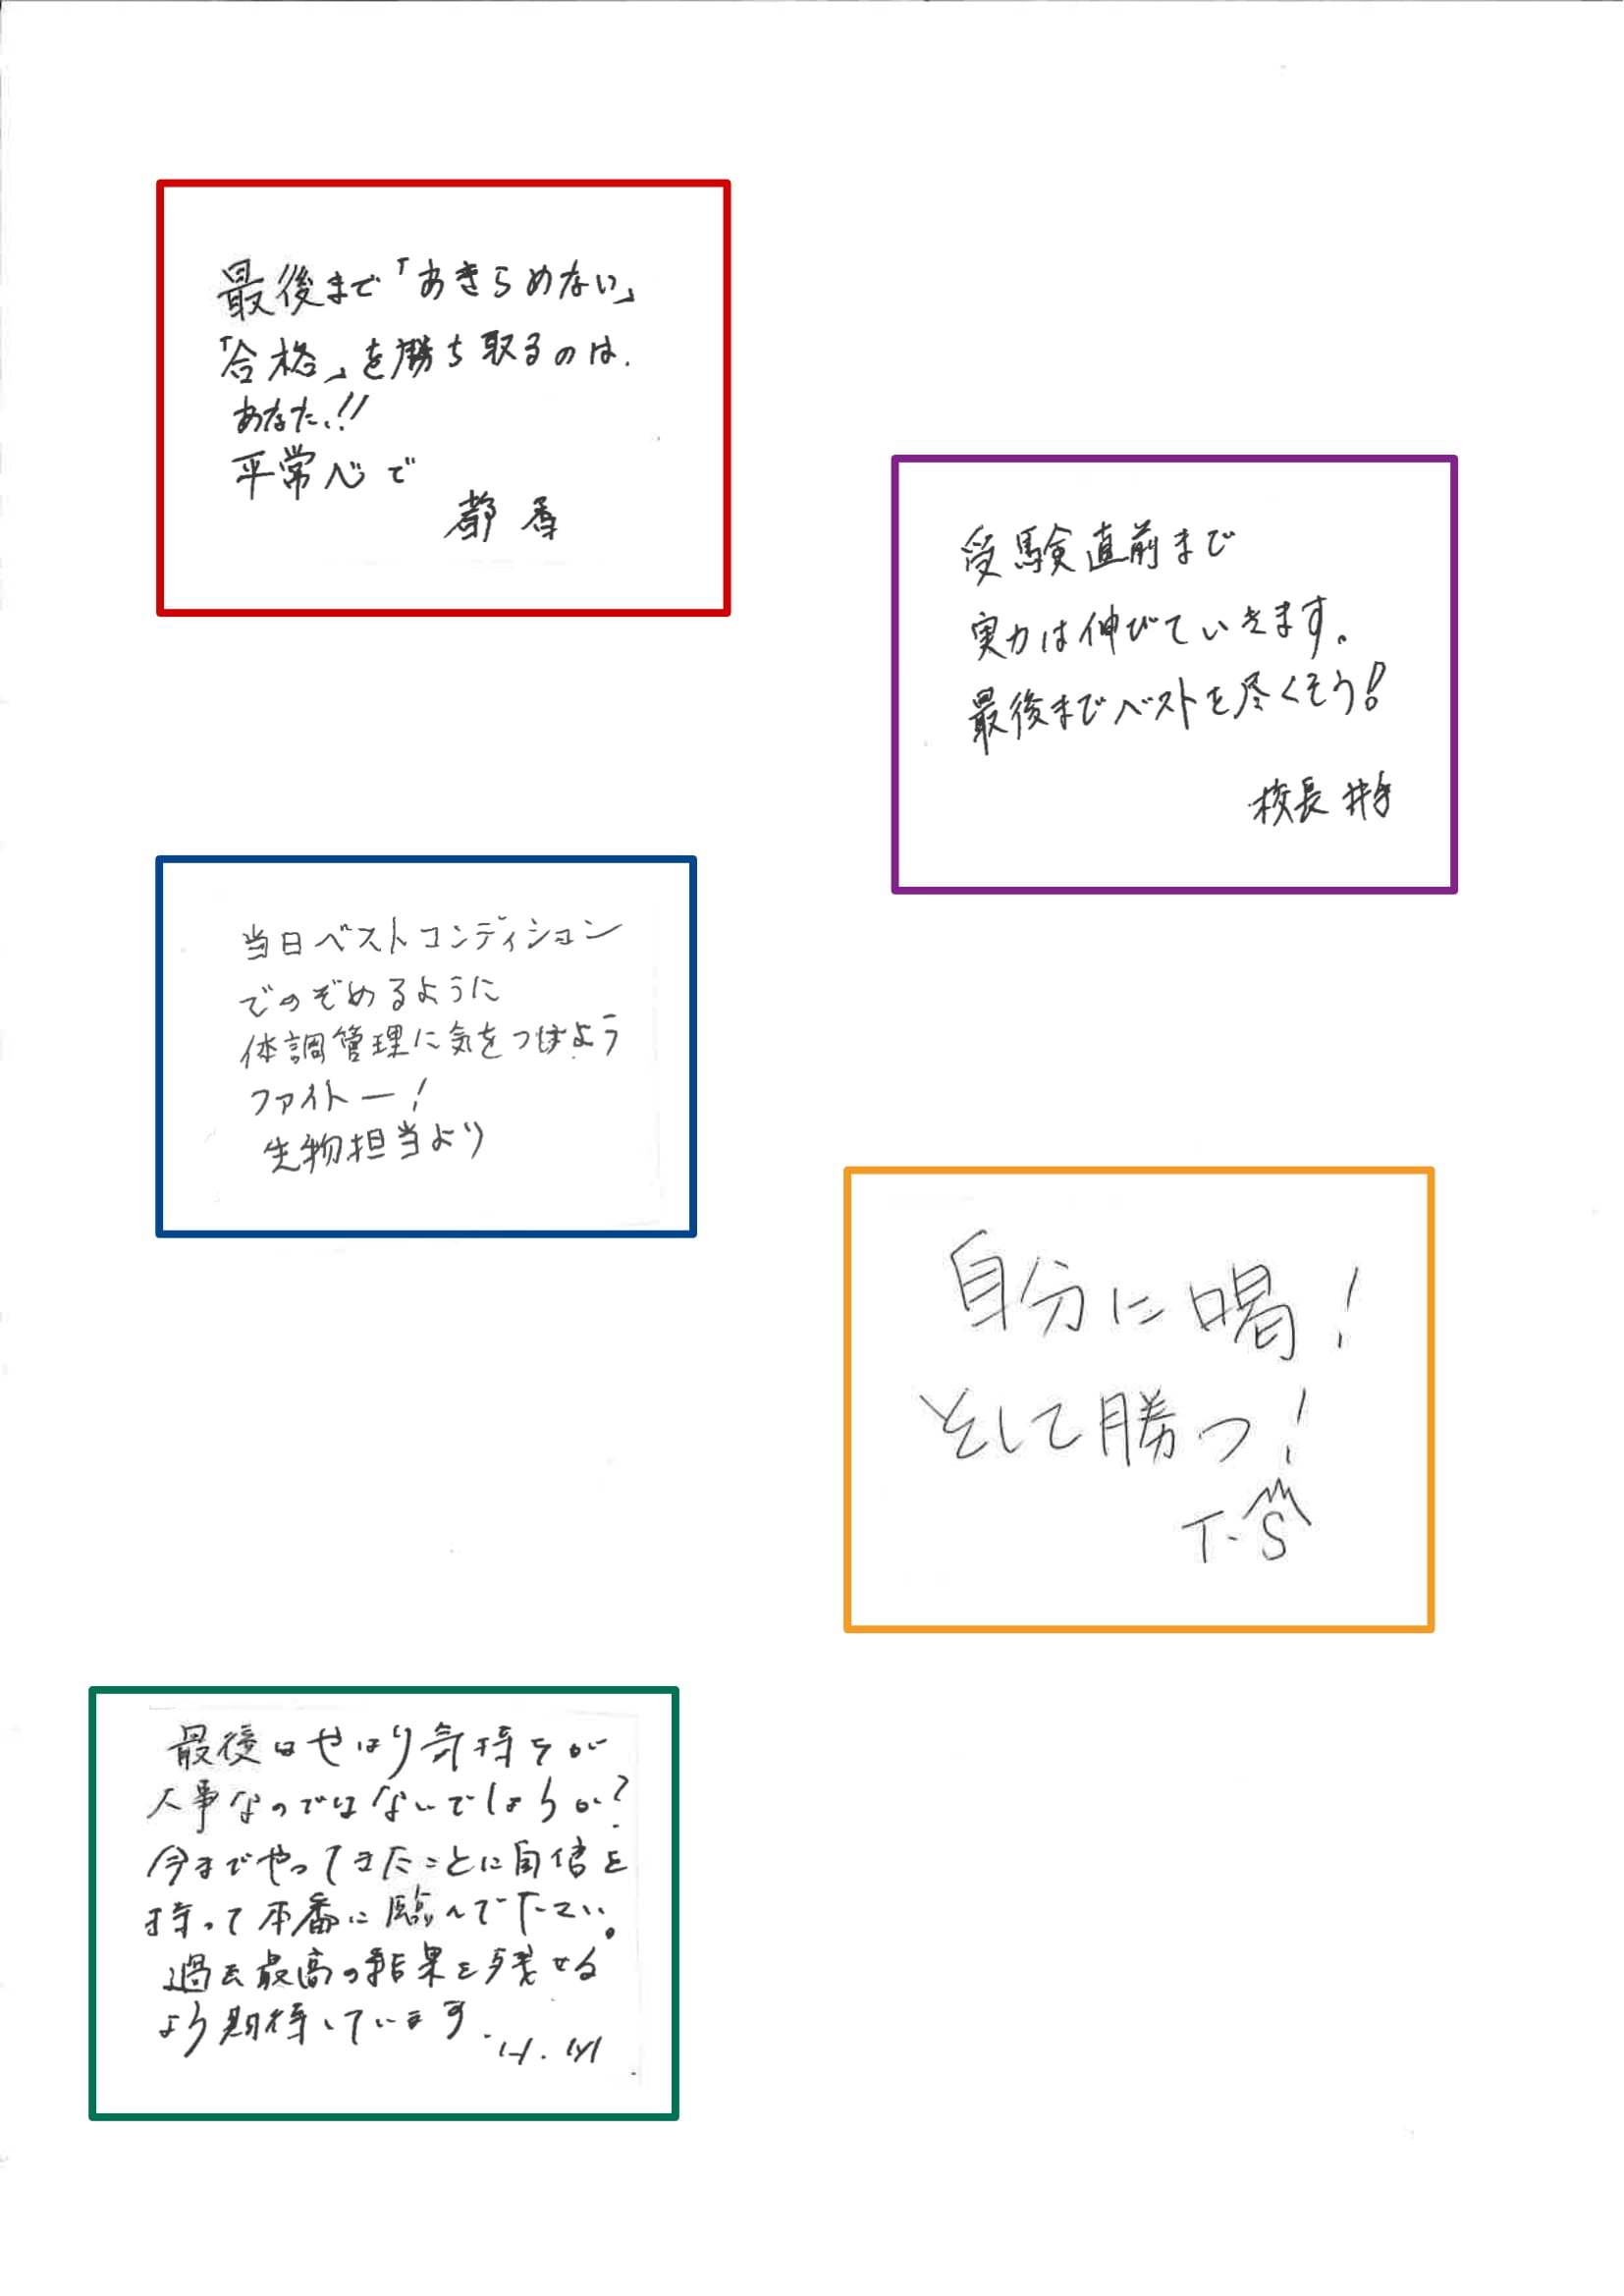 最後まで「あきらめない」
「合格」を勝ち取るのは、
あなた!!
平常心で
受験直前まで
実力は伸びていきます。
最後までベストを尽くそう!
校長 井手
当日ベストコンディション
でのぞめるように
体調管理に気をつけよう
ファイトー!
生物担当より
自分に喝!
そして勝つ!
T.S
最後はやはり気持ちが
大事なのではないでしょうか?
今までやってきたことに自信を
持って本番に臨んで下さい。
過去最高の結果を残せる
よう期待しています。
H.M